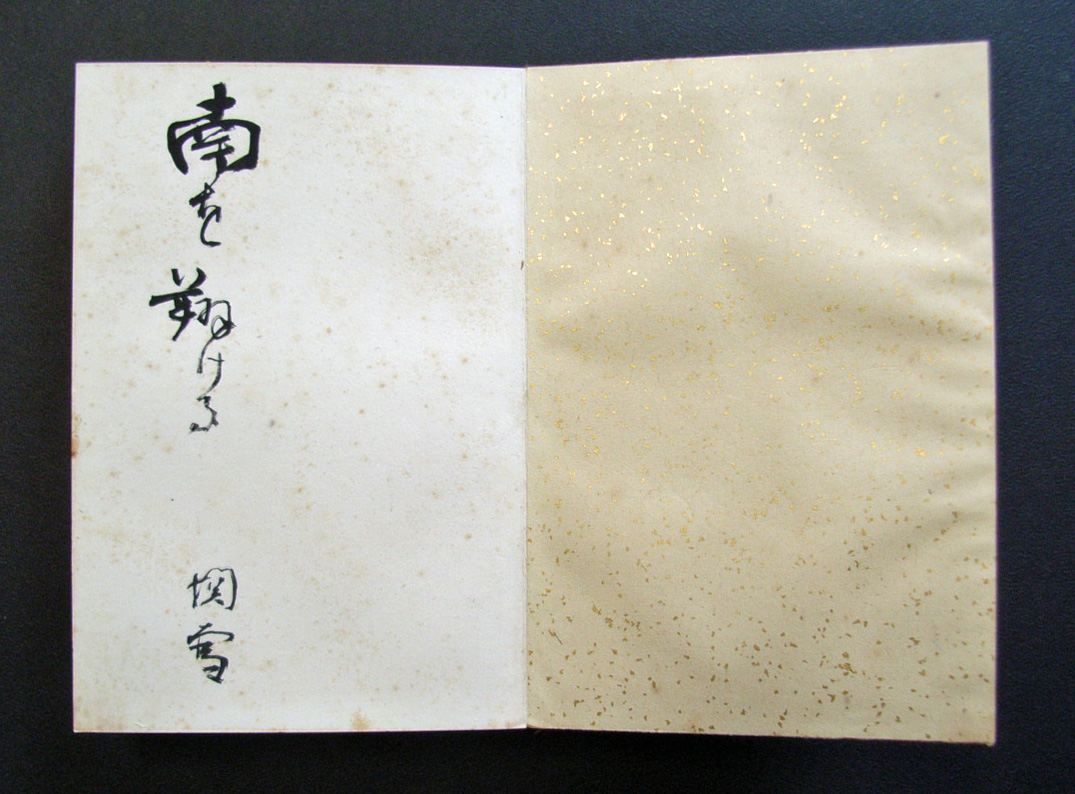 南を翔ける
関雪